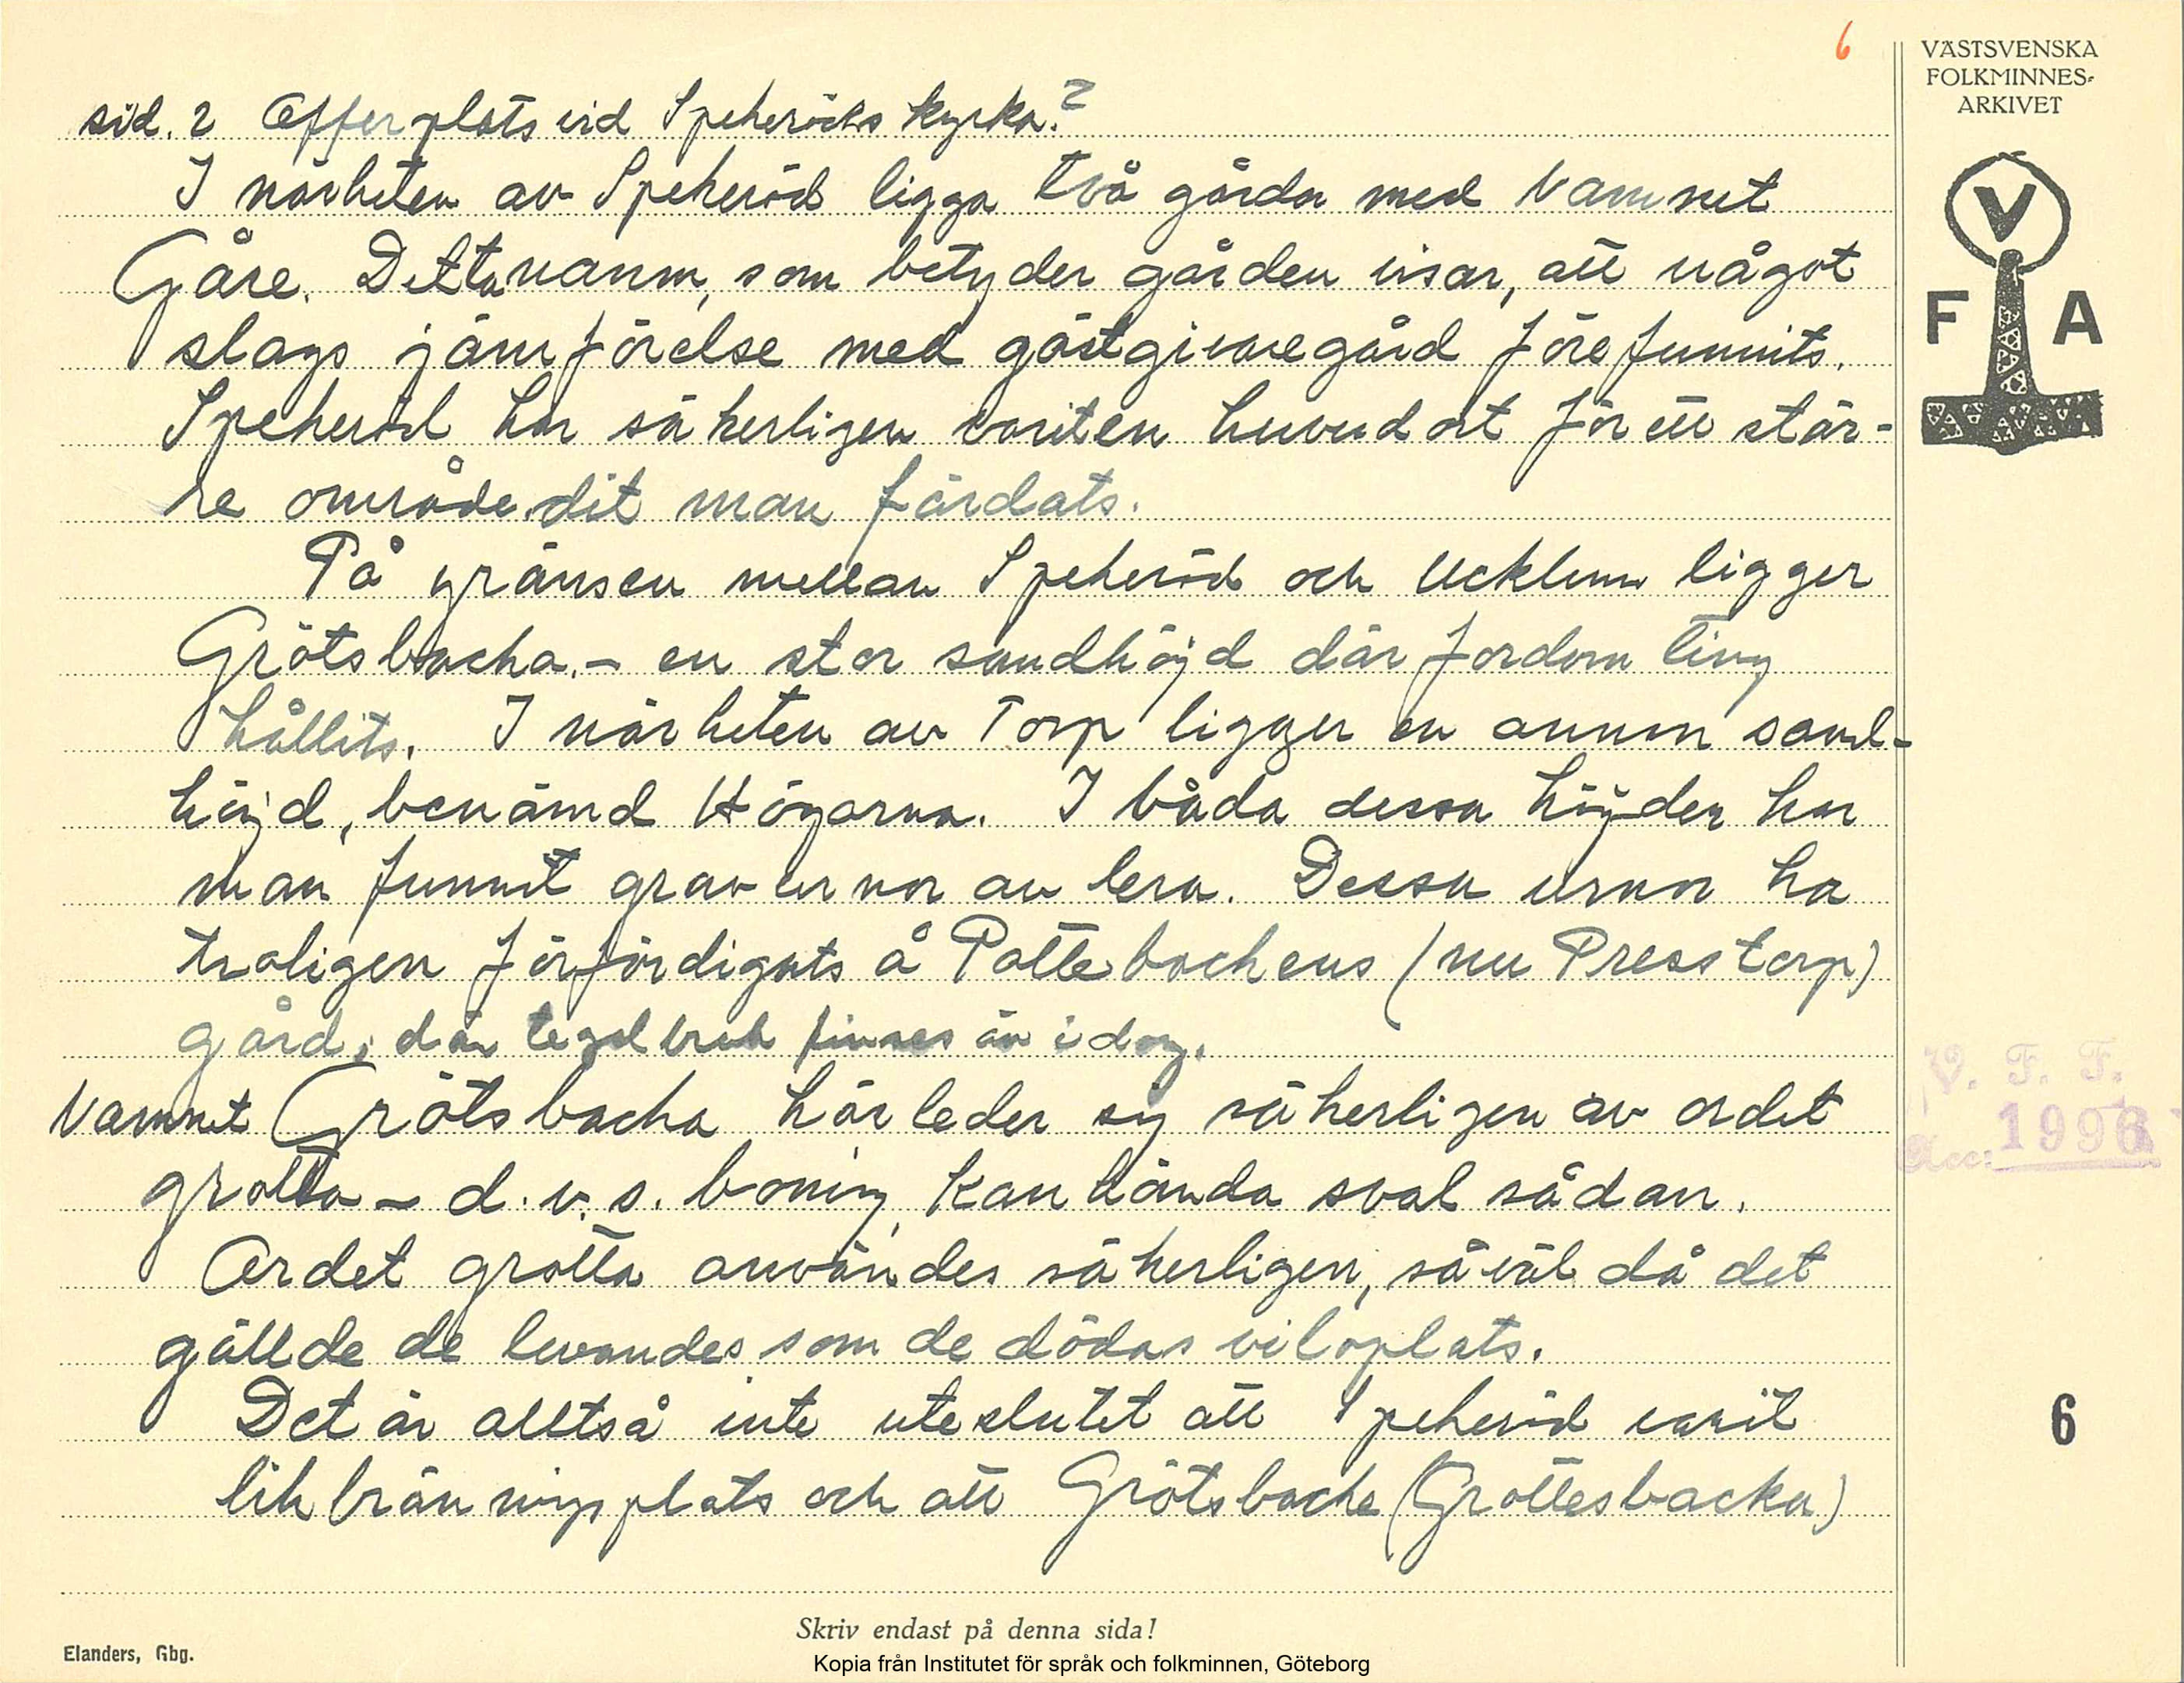 6
VÄSTSVENSKA
FOLKMINNES-
ARKIVET
V
F A
sid. 2 Offerplats vid Spekeröds kyrka?
I närheten av Spekeröd ligga två gårdar med Namnet
Gåre. Detta namn, som betyder gården visar, att något
slags jämförelse med gästgivaregård förefunnits.
Spekeröd har säkerligen variten huvudort för ett stör-
re område dit man färdats.
På gränsen mellan Spekeröd och Ucklum ligger
Grötsbacka. – en stor sandhöjd där fordom ting
hållits. I närheten av Torp ligger en annan sand-
höjd, benämd Högarna. I båda dessa höjder har
man funnit gravurnor av lera. Dessa urnor ha
troligen förfärdigats å Pottebackens (nu Presstorp)
gård, där tegelbruk finnes än idag.
Namnet Grötsbacka härleder sig säkerligen av ordet
grotta – d.v.s. boning, kanhända sval sådan.
Ordet grotta användes säkerligen, såväl då det
gällde de levandes som de dödas viloplats.
Det är alltså inte uteslutet att Spekeröd varit
likbränningsplats och att Grötsbacke (Grottesbacka)
V. F. F.
Acc. 1996
6
Skriv endast på denna sida!
Elanders, Gbg.
Kopia från Institutet för språk och folkminnen, Göteborg